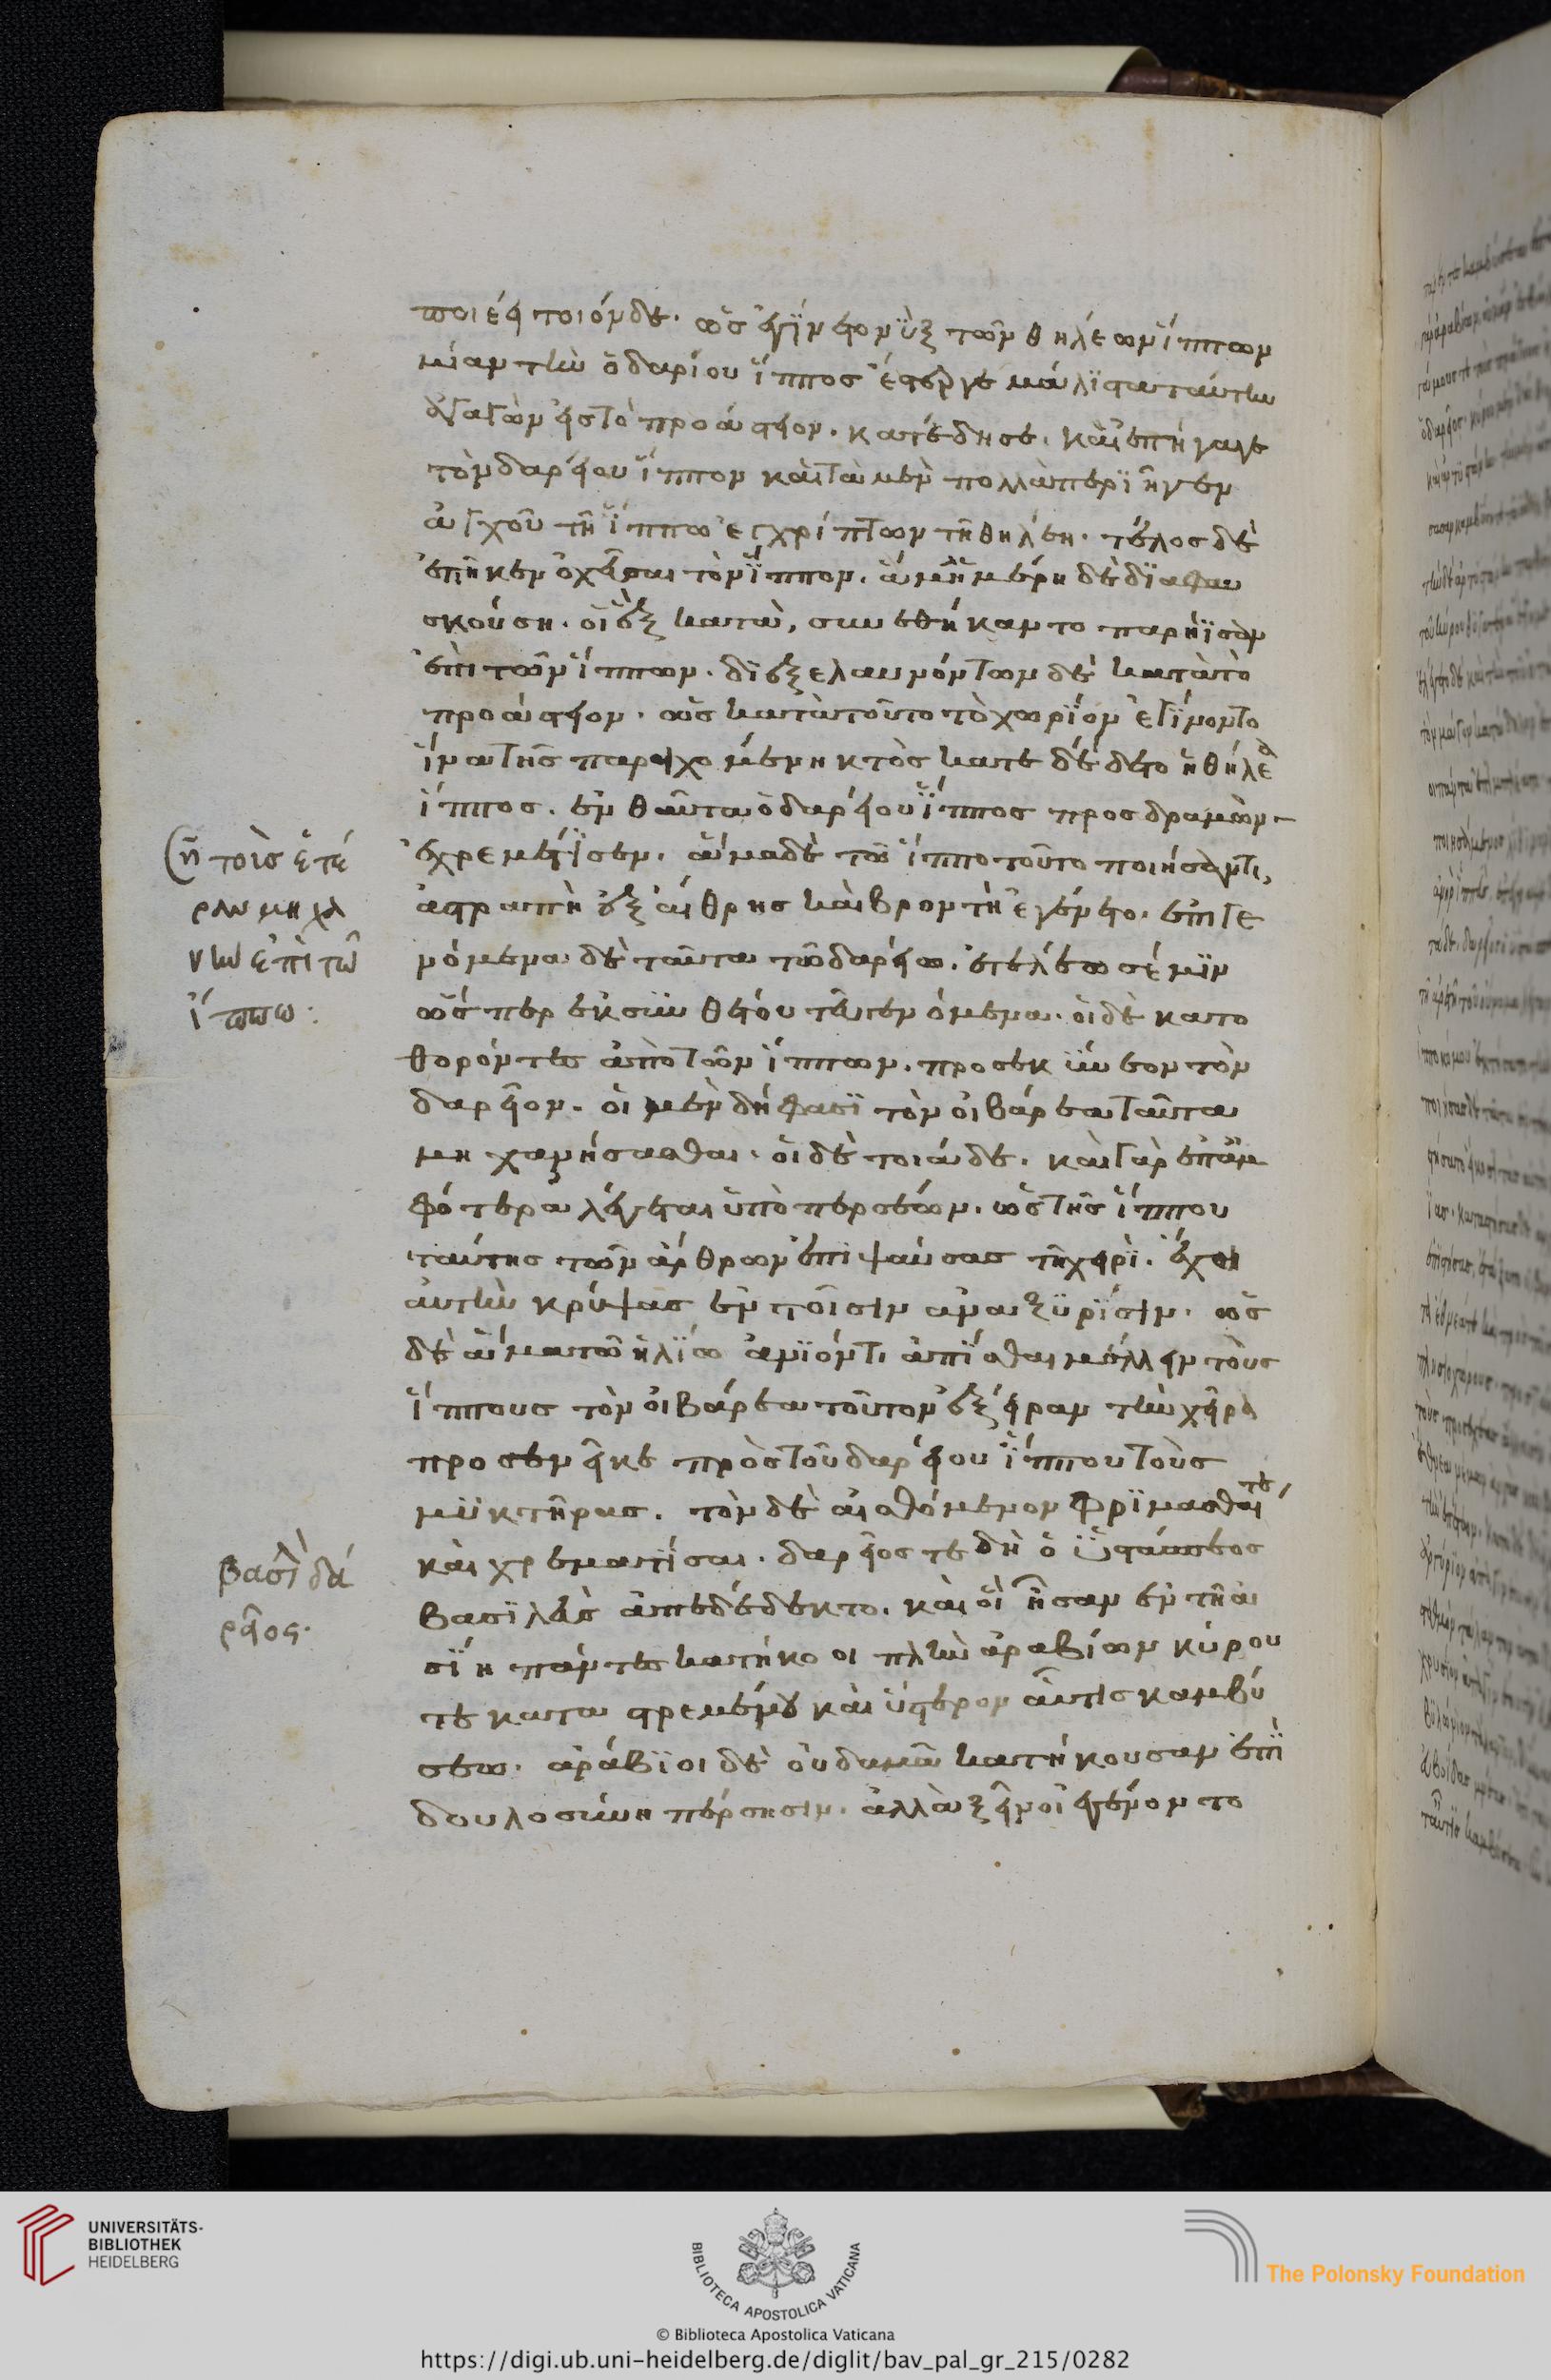 ποιέει τοιόνδε. ὡς ἐγίνετο νὺξ τῶν θηλέων ἵππων
μίαν τὴν ὁ δαρίου ἵππος ἔστεργε μάλιστα ταύτην
ἀγαγὼν ἐς τὸ προάστειον. κατέδησε. καὶ ἐπήγαγε
τὸν δαρείου ἵππον καὶ τὰ μὲν πολλὰ περιῆγεν
ἀγχοῦ τῆ ἵππω ἐγχρίπτων τῆ θηλέη. τέλος δὲ
ἐπῆκεν ὀχεῦσαι τὸν ἵππον. ἅμ' ἡμέρη δὲ διαφαυ
σκούση. οἱ ἓξ κατὰ, συνεθήκαντο παρήϊσαν
ἐπὶ τῶν ἵππων. διεξελαυνόντων δὲ κατὰ τὸ
προάστειον. ὡς κατὰ τοῦτο τὸ χωρίον ἐγίνοντο
ἵνα τῆς παροιχομένη κτὸς κατεδέδετο ἡ θήλεα
ἵππος. ἐνθαῦτα ὁ δαρείου ἵππος προσδραμὼν
ἐχρεμέτισεν. ἅμα δὲ τῶ ἵππο τοῦτο ποιήσαντι,
ἀστραπὴ ἐξ αἴθρης καὶ βροντὴ ἐγένετο. ἐπιγε
νόμενα δὲ ταῦτα τῶ δαρείω. ἐτελέωσέ μιν
ὥσπερ ἐκ συνθέτου τευ γενόμενα. οἱ δὲ κατα
θορόντες ἀπὸ τῶν ἵππων. προσεκύνεον τὸν
δαρεῖον. οἱ μὲν δή φασι τὸν οἰβάρεα ταῦτα
μηχανήσασθαι. οἱ δὲ τοιάδε. καὶ γὰρ ἐπ' ἀμ
φότερα λέγεται ὑπὸ περσέων. ὡς τῆς ἵππου
ταύτης τῶν ἄρθρων ἐπιψαύσας τῆ χειρὶ. ἔχοι
αὐτὴν κρύψας ἐν τοῖσιν ἀναξυρίσιν. ὡς
δὲ ἅμα τῶ ἡλίω ἀνιόντι ἀπίεσθαι μέλλειν τοὺς
ἵππους τὸν οἰβάρεα τοῦτον ἐξείραν τὴν χεῖρα
προσενεῖκε πρὸς τοῦ δαρείου ἵππου τοὺς
μυκτῆρας. τὸν δὲ αἰσθόμενον φριμάσθαι τε
καὶ χρεματίσαι. δαρεῖος τε δὴ ὁ ὑστάσπεος
βασιλεὺς ἀπεδέδεκτο. καὶ οἱ ἦσαν ἐν τῆ ἀ
σίη πάντες κατήκοοι πλὴν ἀραβίων κύρου
τε καταστρεμένου καὶ ὕστερον αὖτις καμβύ
σεω. ἀράβιοι δὲ οὐδαμᾶ κατήκουσαν ἐπὶ
δουλοσύνη πέρσησιν. ἀλλὰ ξεῖνοι ἐγένοντο
τοῖς ἑτέ
ραν μηχα
νὴν ἐπὶ τῶ
ἵππω:
βασιλ δα
ρεῖος.
UNIVERSITÄTS-
BIBLIOTHEK
HEIDELBERG
BIBLIOTECA APOSTOLICA VATICANA
The Polonsky Foundation
© Biblioteca Apostolica Vaticana
https://digi.ub.uni-heidelberg.de/diglit/bav_pal_gr_215/0282